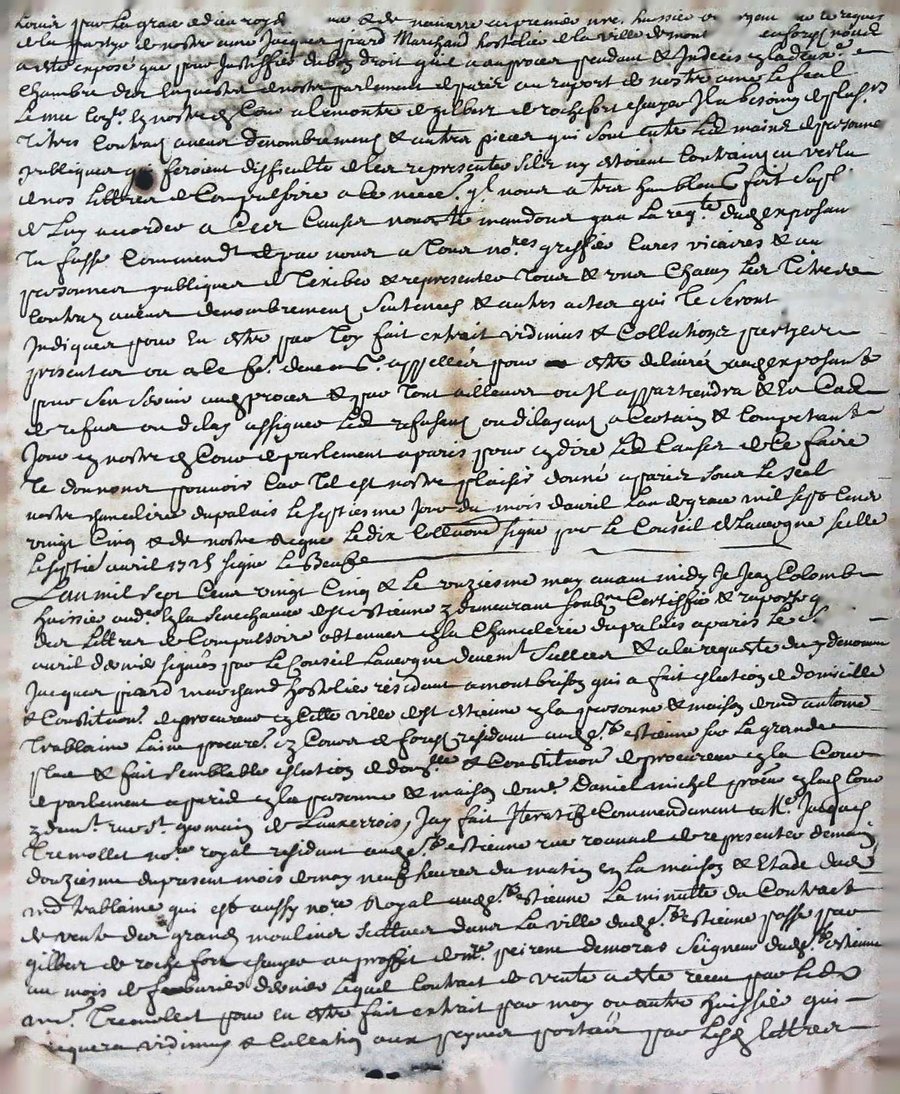 Louis par la grace de dieu roy de et de navarre au premier nre huissier ou sergent sur ce requis
de la partye de nostre amé Jacques pirard Marchand hostelier de la ville de mont en forest nous
a esté exposé que pour Justiffier du bon droit qu'il a au proces pendant & Indecis en la deux.e
chambre des Enquestes de nostre parlement de paris au raport de nostre amé & feal
Le me Con.er en nostre d. Cour a lemontre de gilbert de rochefort Il a besoing de plus.rs
Titres Contracts aveux denombremens & autres pieces qui sont entre Les mains de personnes
publiques qui feroient difficulté de les representer silz ny estoient Contraings en vertu
de nos Lettres de Compulsoire a ce necess. qu'il nous a tres humblement fait sup.r
de Luy accorder a Ces Causes nous te mandons qua La req.te dud exposant
Tu fasse Commend.t de par nous a Tous no.res greffiers Cures vicaires & au
personnes publiques d Exiber & representer Tous & uns Chacuns Les Titres
Contracts aveux denombremens Sentences & autres actes qui Te Seront
Indiques pour En estre par Toy fait extrait vidimus & Collationé partyes
presentes ou a ce fe. deuem.t appellées pour estre delivré aud exposant
pour sen servir aud proces & par Tout ailleurs ou Il appartiendra & En Cas
de refus ou delay assigner Led refusans ou dilayans a Certain & Competant
Jour en nostre d Cour de parlement a paris pour en dire Les Causes de Ce faire
Te donnons pouvoir Car Tel est nostre plaisir donné a paris sous Le scel
nostre chancelerie du palais Le septiesme Jour du mois davril Lan de grace mil sept Cens
vingt Cinq & de nostre Regne Le dix Collationné signé par Le Conseil De Lavergne scellé
Le septie avril 1725 signé Le Beuf
Lan mil sept Cens vingt Cinq & Le onziesme may avant midy Je Jean Colomb
huissier aud. en la senechaucee de st estienne y demeurant soub.ne Certiffie & raporte q.
des Lettres de Compulsoire obtenues en la Chancelerie du palais a paris Le s.
avril dernier signées par Le Conseil Lavergne deuem.t scellees & a la requeste du y denommé
Jacques pirard marchand hostelier residant a montbrison qui a fait eslection de domicille
& Constitution. de procureur en cette ville de st estienne en la personne & maison de md antoine
Trablaine Laine procure. en Cours de forest residant aud st estienne sur La grande
place & fait semblable eslection de dom.lle & Constitution de procureur en la Cour
de parlement a paris en la personne & maison de me. Daniel michel proeur en lad Cour
y dem.t rue st. germain de Lauxerrois, Jay fait Iteratif Commandement a Me. Jacques
Tremollet no.re royal residant aud st estienne rue de representer demain
douziesme du present mois de may neuf heures du matin en La maison & Etude dud
md trablaine qui est aussy no.re Royal aud st estienne La minutte du Contract
de vente des grands moulins scittues dans La ville dud st estienne passé par
gilbert de roche fort au proffit de me. peirenc de moras Seigneur dud st estienne
au mois de febvrier dernier Lequel Contract de vente a esté receu par Led
me. Tremollet pour en estre fait extrait par moy ou autre huissier qui
requera vidimus & Collation aux peynes portées par Lesd lettres